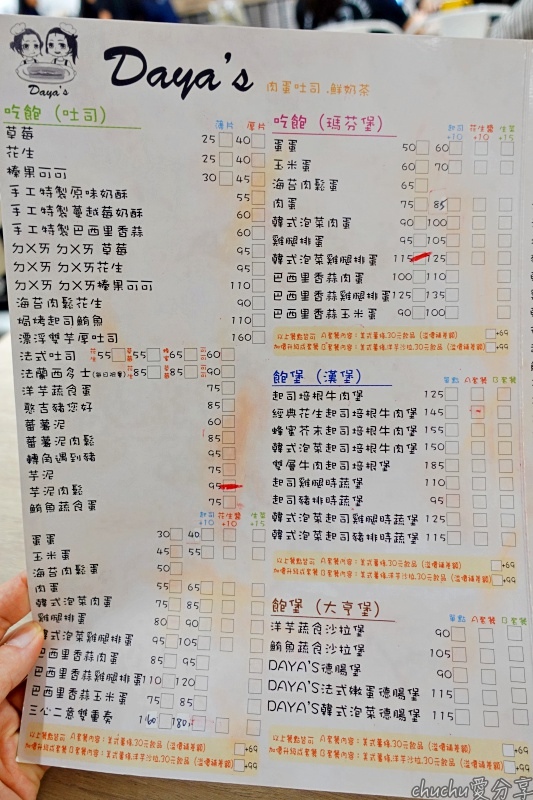 Daya's
Daya's
肉蛋吐司 .鮮奶茶
吃飽 (吐司)
薄片 厚片
草莓 25 40
花生 25 40
榛果可可 30 45
手工特製原味奶酥 55
手工特製蔓越莓奶酥 60
手工特製巴西里香蒜 60
ㄉㄨㄞ ㄉㄨㄞ 草莓 95
ㄉㄨㄞ ㄉㄨㄞ花生 95
ㄉㄨㄞ ㄉㄨㄞ榛果可可 110
海苔肉鬆花生 90
焗烤起司鮪魚 110
漂浮雙芋厚吐司 160
法式吐司 花生 55 草莓 55 蜂蜜 65 可可 60
法蘭西多士(每日限量) 花生 85 草莓 85 可可 90
洋芋蔬食蛋 75
憨吉豬您好 85
蕃薯泥 60
蕃薯泥肉鬆 85
轉角遇到豬 95
芋泥 75
芋泥肉鬆 95
鮪魚蔬食蛋 75
起司+10 花生醬+10 生菜+15
蛋蛋 30 40
玉米蛋 45 55
海苔肉鬆蛋 50
肉蛋 55 65
韓式泡菜肉蛋 75 85
雞腿排蛋 80 90
韓式泡菜雞腿排蛋 95 105
巴西里香蒜肉蛋 85 95
巴西里香蒜雞腿排蛋 110 120
巴西里香蒜玉米蛋 75 85
三心二意雙重奏 160 180
以上餐點皆可 A套餐內容:美式薯條.30元飲品 (溢價補差額) +69
加價升級成套餐 B套餐內容:美式薯條.洋芋沙拉.30元飲品 (溢價補差額) +99
吃飽 (瑪芬堡)
起司+10 花生醬+10 生菜+15
蛋蛋 50 60
玉米蛋 60 70
海苔肉鬆蛋 65
肉蛋 75 85
韓式泡菜肉蛋 90 100
雞腿排蛋 95 105
韓式泡菜雞腿排蛋 115 125
巴西里香蒜肉蛋 100 110
巴西里香蒜雞腿排蛋 125 135
巴西里香蒜玉米蛋 90 100
以上餐點皆可 A套餐內容:美式薯條.30元飲品 (溢價補差額) +69
加價升級成套餐 B套餐內容:美式薯條.洋芋沙拉.30元飲品 (溢價補差額) +99
飽堡 (漢堡)
單點 A套餐 B套餐
起司培根牛肉堡 125
經典花生起司培根牛肉堡 145
蜂蜜芥末起司培根牛肉堡 155
韓式泡菜起司培根牛肉堡 150
雙層牛肉起司培根堡 185
起司雞腿時蔬堡 110
起司豬排時蔬堡 95
韓式泡菜起司雞腿時蔬堡 125
韓式泡菜起司豬排時蔬堡 115
以上餐點皆可 A套餐內容:美式薯條.30元飲品 (溢價補差額) +69
加價升級成套餐 B套餐內容:美式薯條.洋芋沙拉.30元飲品 (溢價補差額) +99
飽堡 (大亨堡)
單點 A套餐 B套餐
洋芋蔬食沙拉堡 90
鮪魚蔬食沙拉堡 105
DAYA'S德腸堡 90
DAYA'S法式嫩蛋德腸堡 115
DAYA'S韓式泡菜德腸堡 115
以上餐點皆可 A套餐內容:美式薯條.30元飲品 (溢價補差額) +69
加價升級成套餐 B套餐內容:美式薯條.洋芋沙拉.30元飲品 (溢價補差額) +99
chuchu愛分享